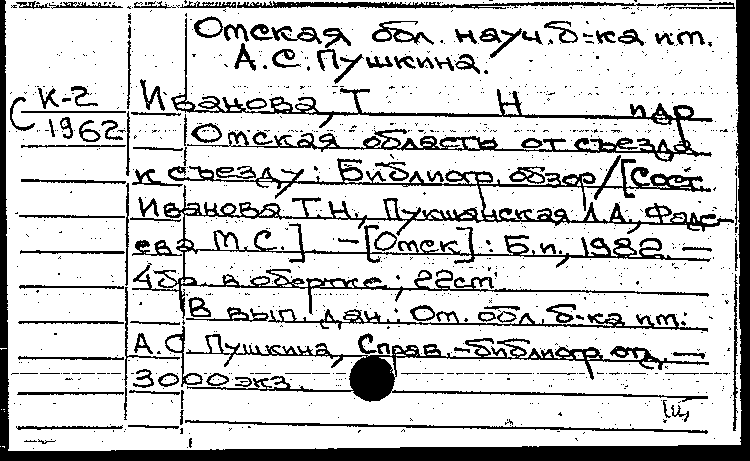 Омская обл. науч. б-ка им.
А.С. Пушкина.
К-2
1962
Иванова, Т Н и др
Омская область от съезда
к съезду: Библиогр. обзор/[Сост.
Иванова Т.Н., Пукшанская Л.А., Фаде-
ева М.С.] – [Омск]: Б.и., 1982. —
4бр. в обертке; 22см
В вып. дан.: Ом. обл. б-ка им.
А.С Пушкина, Справ.-библиогр. отд. —
3000экз.